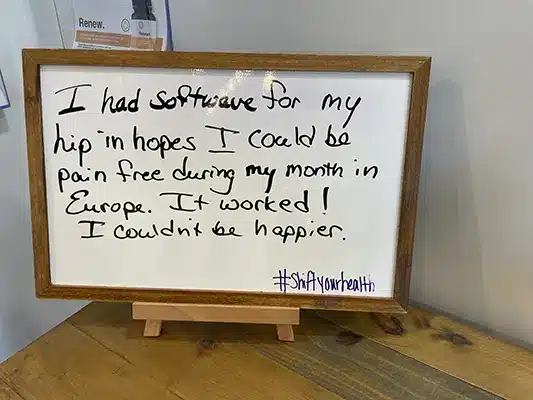 Renew.
I had softwave for my
hip in hopes I could be
pain free during my month in
Europe. It worked!
I couldn't be happier.
#Shiftyourhealth